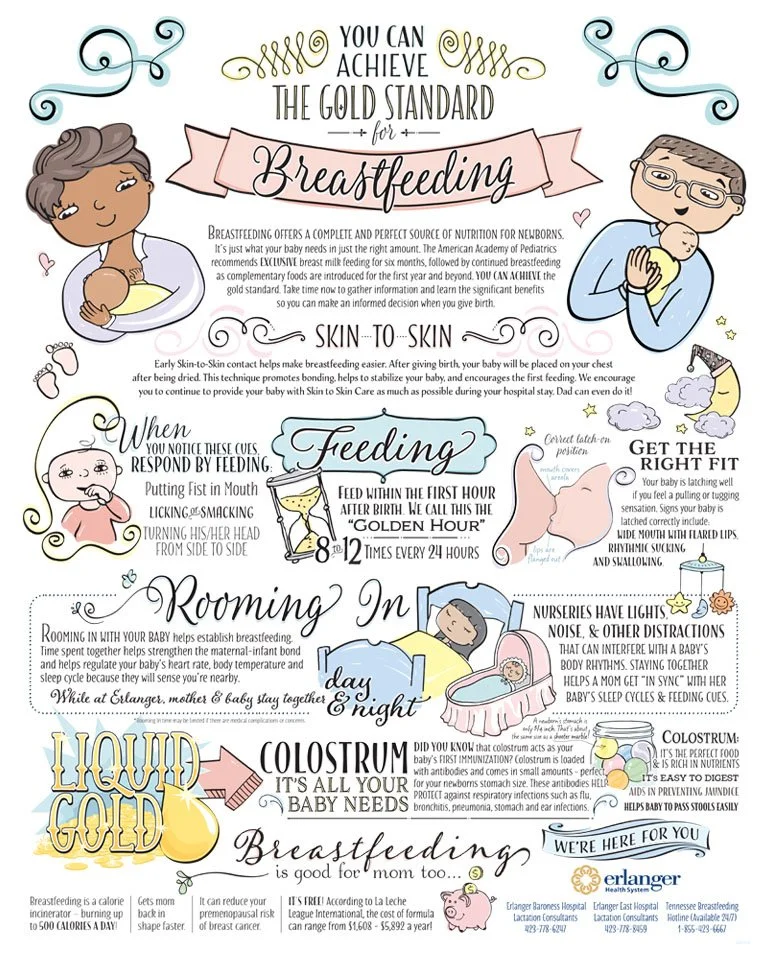 YOU CAN
ACHIEVE
THE GOLD STANDARD
for
Breastfeeding
BREASTFEEDING OFFERS A COMPLETE AND PERFECT SOURCE OF NUTRITION FOR NEWBORNS.
It's just what your baby needs in just the right amount. The American Academy of Pediatrics
recommends EXCLUSIVE breast milk feeding for six months, followed by continued breastfeeding
as complementary foods are introduced for the first year and beyond. YOU CAN ACHIEVE the
gold standard. Take time now to gather information and learn the significant benefits
so you can make an informed decision when you give birth.
SKIN-TO-SKIN
Early Skin-to-Skin contact helps make breastfeeding easier. After giving birth, your baby will be placed on your chest
after being dried. This technique promotes bonding, helps to stabilize your baby, and encourages the first feeding. We encourage
you to continue to provide your baby with Skin to Skin Care as much as possible during your hospital stay. Dad can even do it!
When
YOU NOTICE THESE CUES,
RESPOND BY FEEDING:
Putting Fist in Mouth
LICKING or SMACKING
TURNING HIS/HER HEAD
FROM SIDE TO SIDE
Feeding
FEED WITHIN THE FIRST HOUR
AFTER BIRTH. WE CALL THIS THE
"GOLDEN HOUR"
8 TO 12 TIMES EVERY 24 HOURS
Correct latch-on
position
mouth covers
areola
lips are
flanged out
GET THE
RIGHT FIT
Your baby is latching well
if you feel a pulling or tugging
sensation. Signs your baby is
latched correctly include:
WIDE MOUTH WITH FLARED LIPS,
RHYTHMIC SUCKING
AND SWALLOWING.
Rooming In
ROOMING IN WITH YOUR BABY helps establish breastfeeding.
Time spent together helps strengthen the maternal-infant bond
and helps regulate your baby's heart rate, body temperature and
sleep cycle because they will sense you're nearby.
While at Erlanger, mother & baby stay together
day
& night
*Rooming in time may be limited if there are medical complications or concerns.
NURSERIES HAVE LIGHTS,
NOISE, & OTHER DISTRACTIONS
THAT CAN INTERFERE WITH A BABY'S
BODY RHYTHMS. STAYING TOGETHER
HELPS A MOM GET "IN SYNC" WITH HER
BABY'S SLEEP CYCLES & FEEDING CUES.
LIQUID
GOLD
COLOSTRUM
IT'S ALL YOUR
BABY NEEDS
DID YOU KNOW that colostrum acts as your
baby's FIRST IMMUNIZATION? Colostrum is loaded
with antibodies and comes in small amounts - perfect
for your newborns stomach size. These antibodies HELP
PROTECT against respiratory infections such as flu,
bronchitis, pneumonia, stomach and ear infections.
A newborn's stomach is
only the size. That's about
the same size as a shooter marble!
COLOSTRUM:
IT'S THE PERFECT FOOD
& IS RICH IN NUTRIENTS
IT'S EASY TO DIGEST
AIDS IN PREVENTING JAUNDICE
HELPS BABY TO PASS STOOLS EASILY
Breastfeeding
is good for mom too...
Breastfeeding is a calorie
incinerator – burning up
to 500 CALORIES A DAY!
Gets mom
back in
shape faster.
It can reduce your
premenopausal risk
of breast cancer.
IT'S FREE! According to La Leche
League International, the cost of formula
can range from $1,608 - $5,892 a year!
WE'RE HERE FOR YOU
erlanger
Health System
Erlanger Baroness Hospital
Lactation Consultants
423-778-6247
Erlanger East Hospital
Lactation Consultants
423-778-8459
Tennessee Breastfeeding
Hotline (Available 24/7)
1-855-423-6667